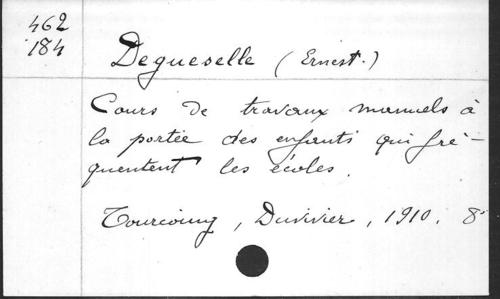 462
184
Degueselle (Ernest.)
Cours de travaux manuels à
la portée des enfants qui fré-
quentent les écoles.
Tourcoing, Duvivier, 1910. 8º